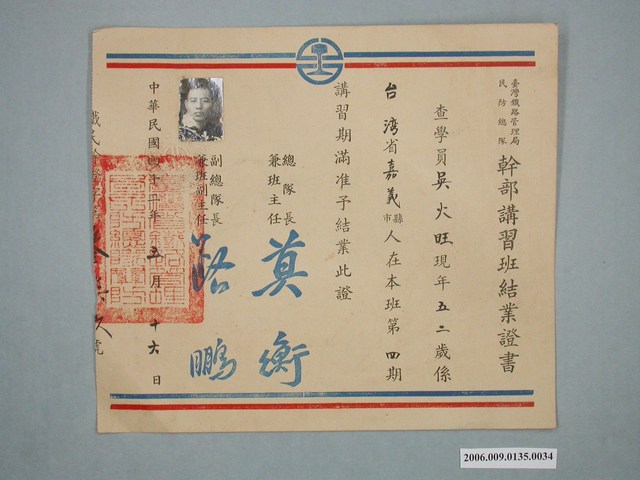 臺灣鐵路管理局
民防總隊
幹部講習班結業證書
查學員吳火旺現年五二歲係
台灣省嘉義縣市人在本班第四期
講習期滿准予結業此證
總隊長
兼班主任
莫衡
副總隊長
兼班副主任
路鵬
中華民國四十一年五月十六日
2006.009.0135.0034